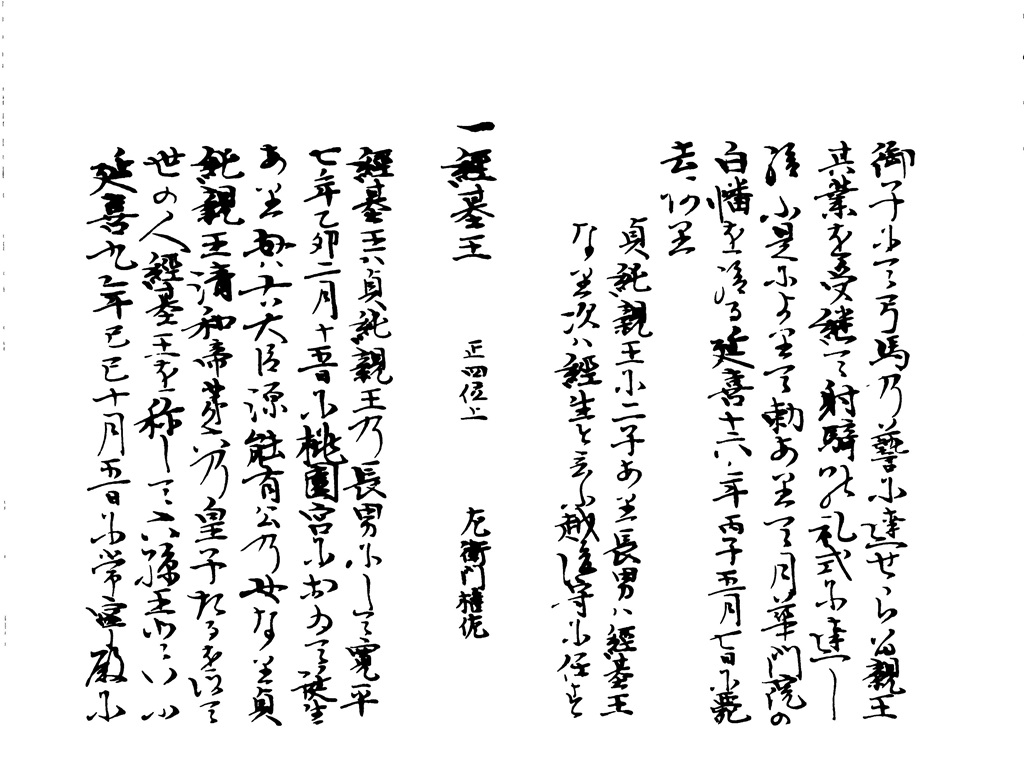 御子にて弓馬乃藝に達せらる親王
其業を受継て射騎の禮式に達し
給ふ是によりて勅ありて月華門院の
白幡を給る延喜十六年丙子五月七日に薨
去し給ふ
貞純親王に二子あり長男ハ經基王
なり次ハ經生と云ふ越後守に任す
一經基王 正四位上 左衛門権佐
經基王ハ貞純親王乃長男にして寛平
七年乙卯二月十五日に桃園宮において誕生
あり母ハ右大臣源能有公乃女なり貞
純親王清和帝第六乃皇子たるを以て
世の人經基王を称して六孫王といふ
延喜九年己巳十月五日に常寧殿に